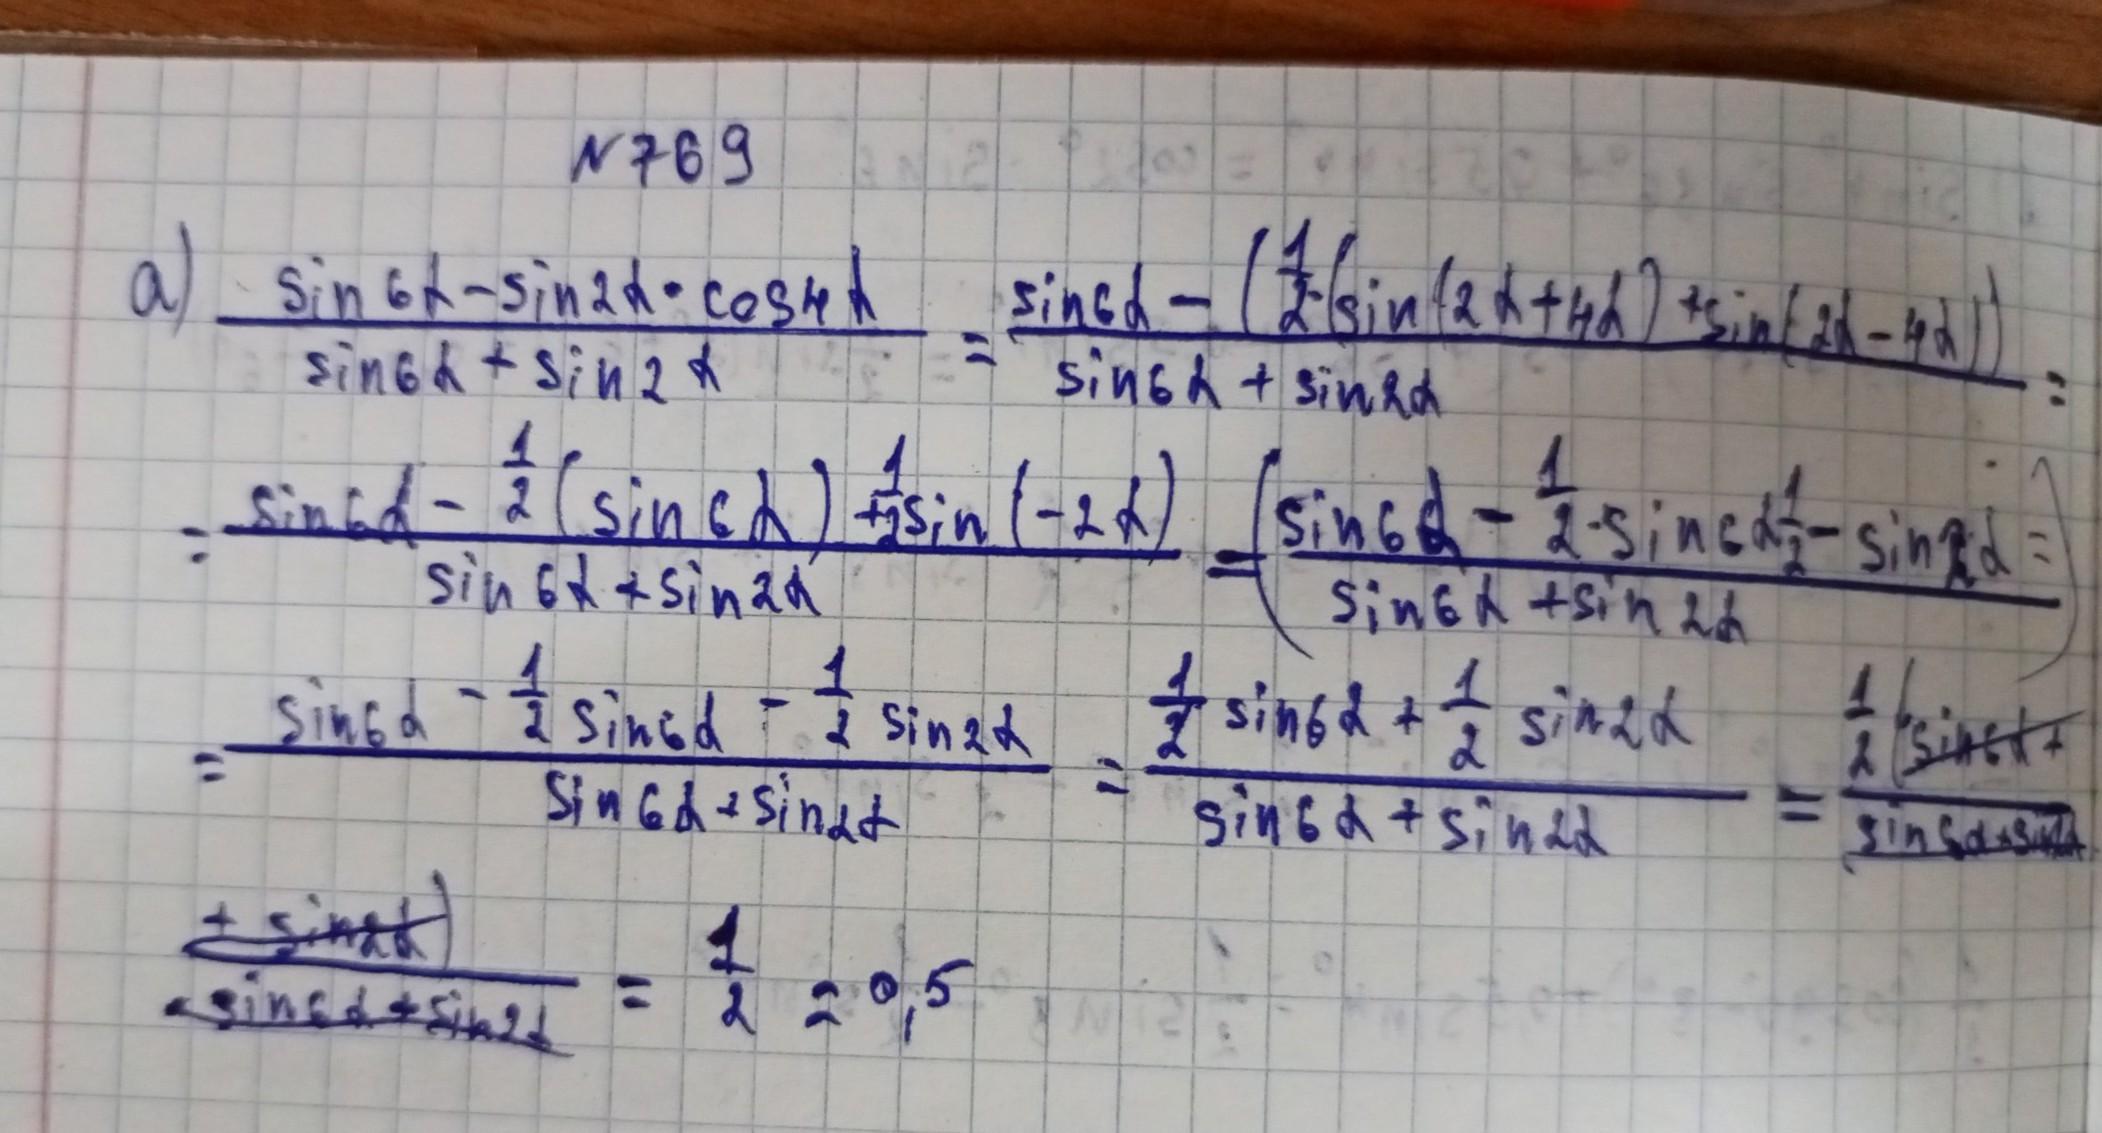 N769
а) (sin6α - sin2α · cos4α)/(sin6α + sin2α) = (sin6α - (1/2·(sin(2α+4α) + sin(2α-4α)))/(sin6α + sin2α) =
= (sin6α - 1/2 (sin6α) + 1/2 sin(-2α))/(sin6α + sin2α) = ((sin6α - 1/2 · sin6α 1/2 - sin2α =)/(sin6α + sin2α))
= (sin6α - 1/2 sin6α - 1/2 sin2α)/(sin6α + sin2α) = (1/2 sin6α + 1/2 sin2α)/(sin6α + sin2α) = (1/2 (sin6α +)/(sin6α + sin2α)
(+ sin2α))/(sin6α + sin2α) = 1/2 = 0,5